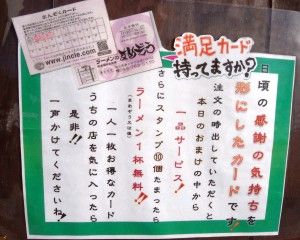 まんぞくカード
www.jincle.com
ラーメンの
まんぞう
満足カード
持ってますか?
日頃の感謝の気持ちを
形にしたカードです!
注文の時出していただくと
本日のおまけの中から
一品サービス!
さらにスタンプ⑩個たまったら
ラーメン1杯無料!!
一人一枚お得なカード
うちの店を気に入ったら
是非!!
一声かけてくださいね!